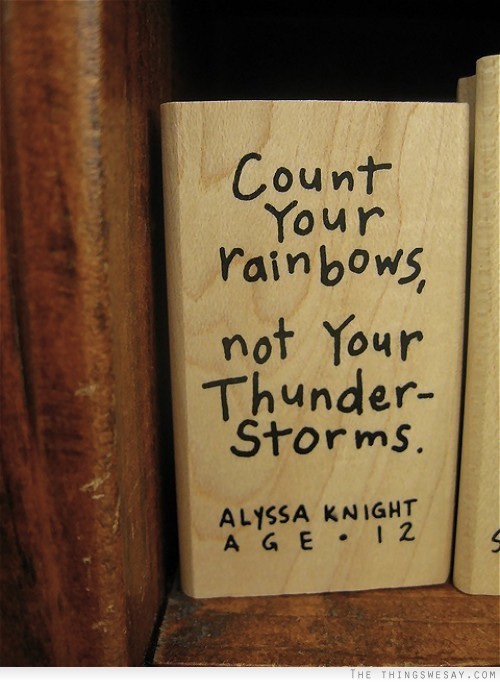 Count
Your
rainbows,
not Your
Thunder-
Storms.
ALYSSA KNIGHT
AGE • 12
S
THE THINGSWESAY.COM